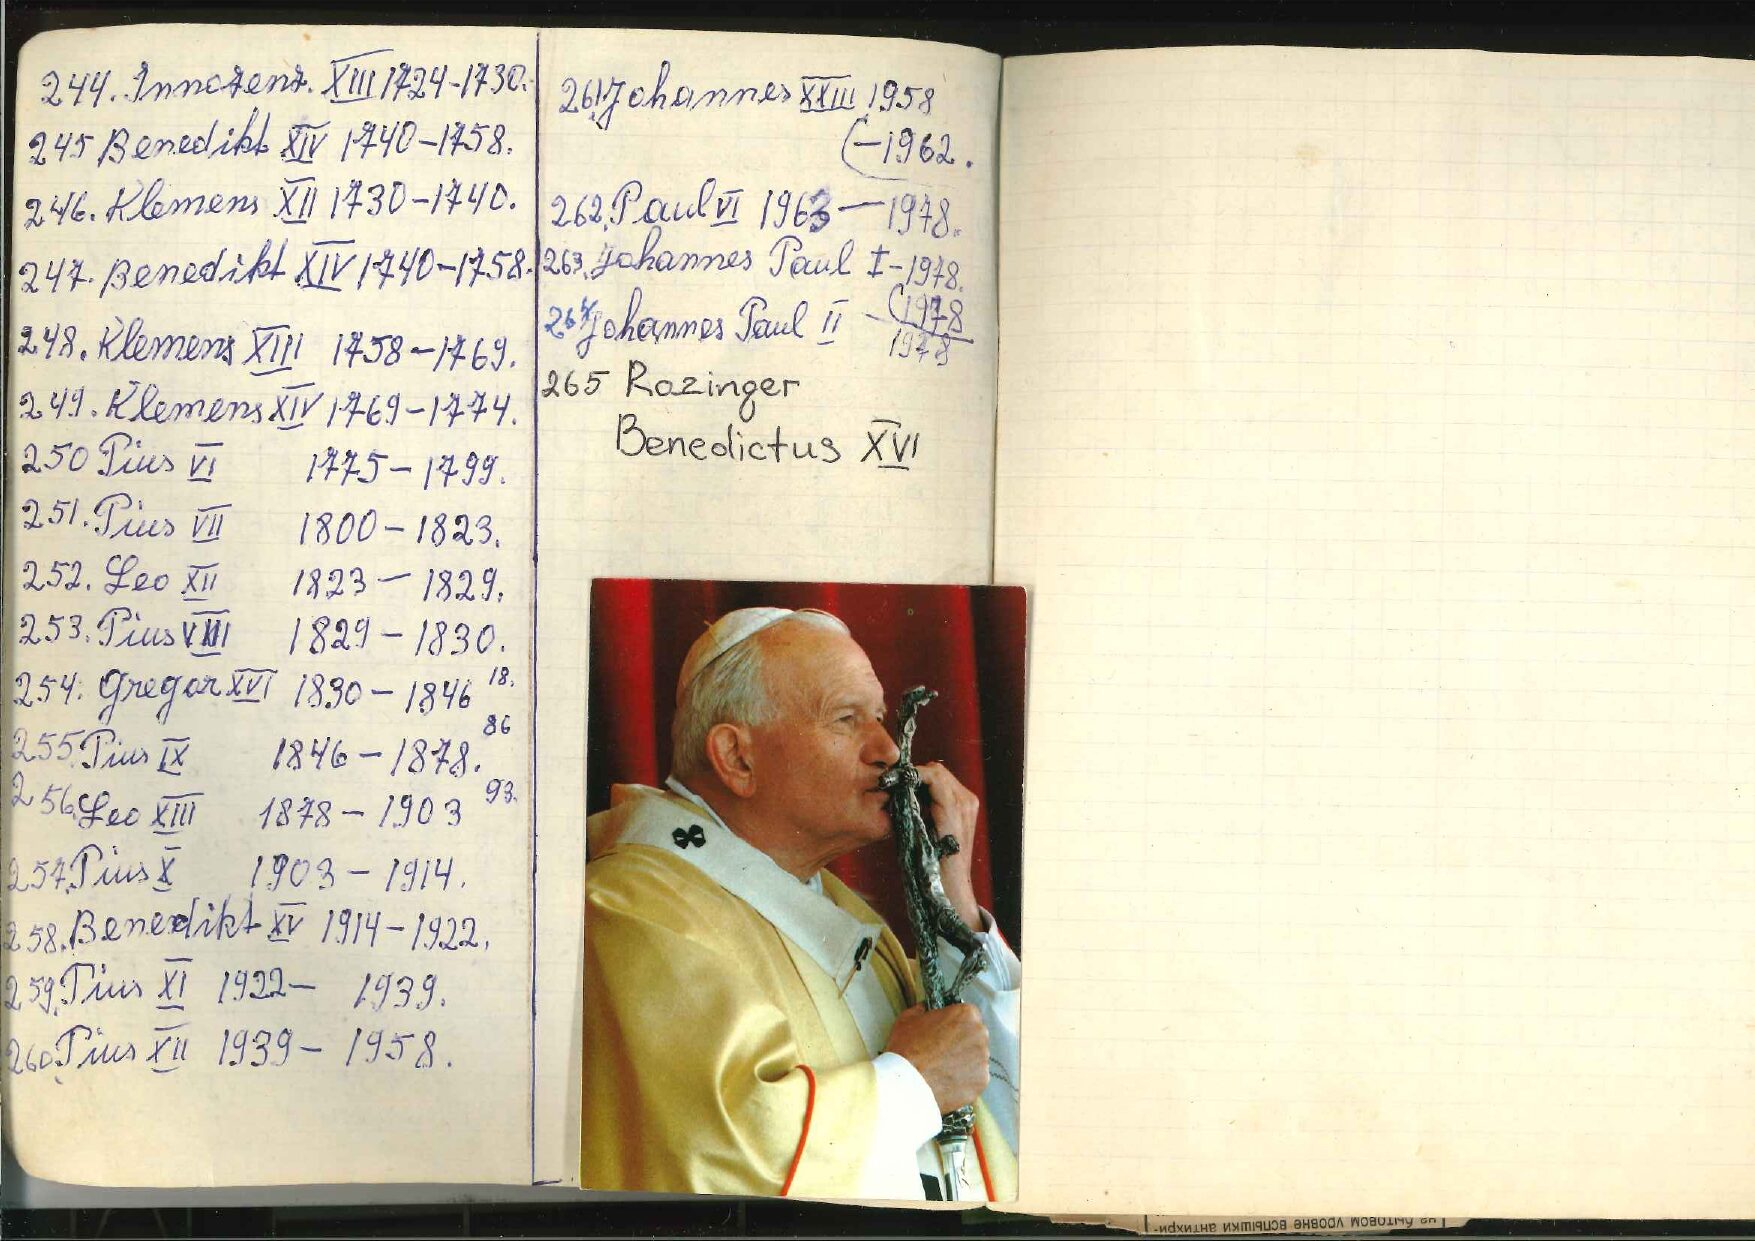 244. Innozenz. XIII 1724-1730.
245 Benedikt XIV 1740-1758.
246. Klemens XII 1730-1740.
247. Benedikt XIV 1740-1758.
248. Klemens XIII 1758-1769.
249. Klemens XIV 1769-1774.
250 Pius VI 1775-1799.
251. Pius VII 1800-1823.
252. Leo XII 1823-1829.
253. Pius VIII 1829-1830.
254. Gregor XVI 1830-1846 18.
86
255. Pius IX 1846-1878.
256. Leo XIII 1878-1903 93.
257. Pius X 1903-1914.
258. Benedikt XV 1914-1922.
259. Pius XI 1922- 1939.
260. Pius XII 1939- 1958.
261. Johannes XXIII 1958
(-1962.
262. Paul VI 1963-1978.
263. Johannes Paul I-1978.
264 Johannes Paul II - (1978
1978
265 Razinger
Benedictus XVI
на бытовом уровне вспышки антихри-